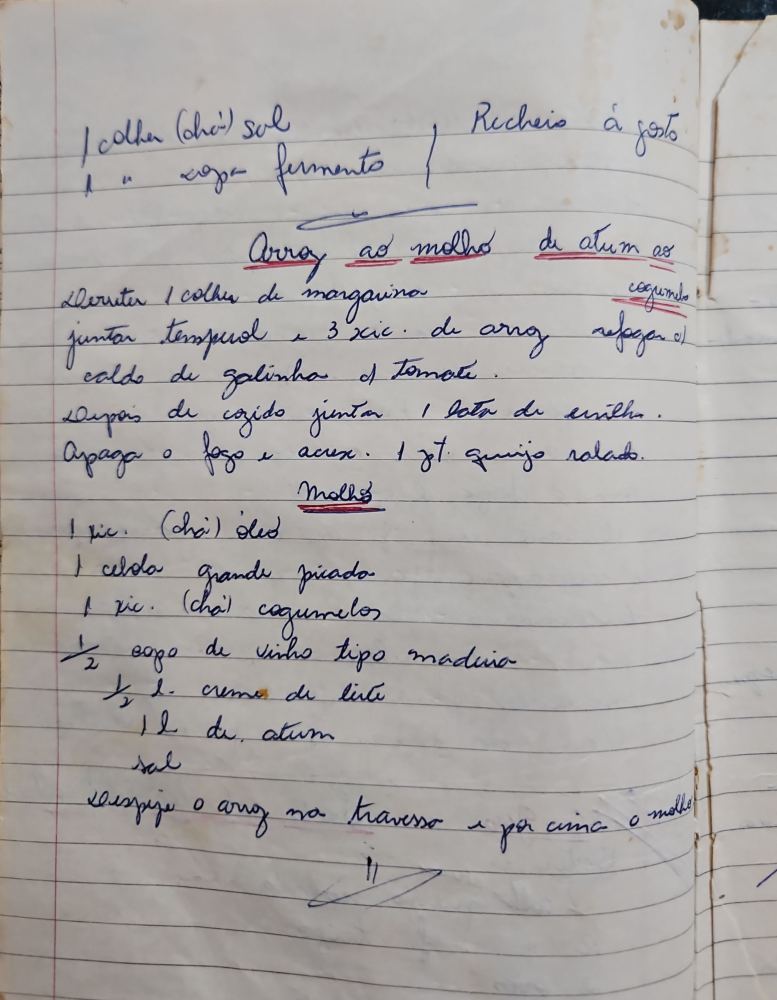 1 colher (chá) sal
1 " sopa fermento
Recheio à gosto
Arroz ao molho de atum ao
cogumelo
Derreter 1 colher de margarina
juntar temperol e 3 xic. de arroz refogar c/
caldo de galinha c/ tomate.
Depois de cozido juntar 1 lata de ervilha.
Apaga o fogo e acresc. 1 pt. queijo ralado.
Molho
1 xic. (chá) óleo
1 cebola grande picada
1 xic. (chá) cogumelos
1/2 copo de vinho tipo madeira
1/2 l. creme de leite
1 l de. atum
sal
Despeje o arroz na travessa e por cima o molho